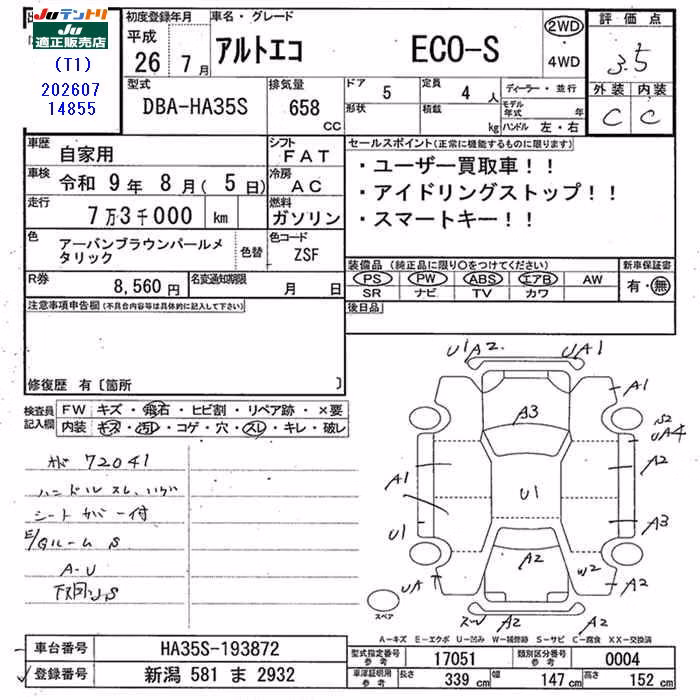 Juテントリ
Ju適正販売店
(T1)
202607
14855
初度登録年月
平成
26年 7月
車名・グレード
アルトエコ ECO-S
2WD
・
4WD
評価点
3.5
外装 内装
C C
型式
DBA-HA35S
排気量
658
CC
ドア 5
定員 4人
ディーラー・並行
形状
積載 kg
モデル年式 年
ハンドル 左・右
車歴 自家用
シフト FAT
車検 令和 9年 8月(5日)
冷房 AC
走行 7万3千000 km
燃料 ガソリン
色 アーバンブラウンパールメタリック
色替
色コード ZSF
R券 8,560円
名変通知期限 月 日
セールスポイント(正常に機能するものに限ります)
・ユーザー買取車!!
・アイドリングストップ!!
・スマートキー!!
装備品(純正品に限り○をつけてください)
PS PW ABS エアB AW
SR ナビ TV カワ
新車保証書
有・無
後日品
注意事項申告欄(不具合内容等は具体的に記入して下さい)
修復歴 有〔箇所 〕
検査員記入欄
FW キズ・飛石・ヒビ割・リペア跡・×要
内装 キズ・汚れ・コゲ・穴・スレ・キレ・破レ
72041
ハンドルスレ、
シート 付
E/Gルーム S
A-U
下回り、S
U1 A2 UA1
A1
A3
S2
UA4
A1
A2
U1
A3
U1
A2
W2
UA
A2
A2
A2
スペア
A－キズ E－エクボ U－凹み W－補修跡 S－サビ C－腐食 XX－交換済
車台番号 HA35S-193872
登録番号 新潟 581 ま 2932
型式指定番号 参考 17051
類別区分番号 参考 0004
車庫証明用 参考 長さ 339cm 幅 147cm 高さ 152cm